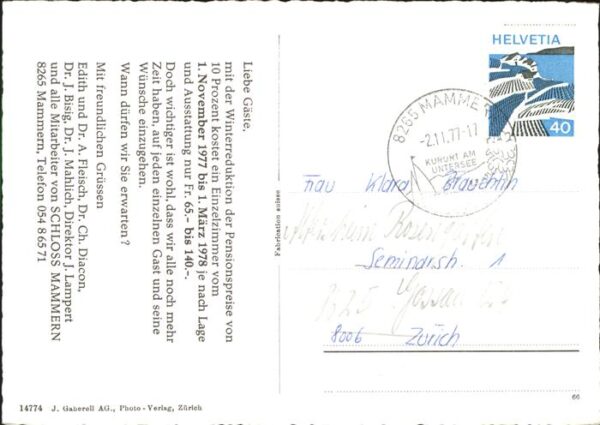 Liebe Gäste,
mit der Winterreduktion der Pensionspreise von
10 Prozent kostet ein Einzelzimmer vom
1. November 1977 bis 1. März 1978 je nach Lage
und Ausstattung nur Fr. 65.– bis 140.–.
Doch wichtiger ist wohl, dass wir alle noch mehr
Zeit haben, auf jeden einzelnen Gast und seine
Wünsche einzugehen.
Wann dürfen wir Sie erwarten?
Mit freundlichen Grüssen
Edith und Dr. A. Fleisch, Dr. Ch. Diacon,
Dr. J. Bisig, Dr. J. Mahlich, Direktor J. Lampert
und alle Mitarbeiter von SCHLOSS MAMMERN
8265 Mammern, Telefon 054 8 65 71
14774 J. Gaberell AG., Photo-Verlag, Zürich
HELVETIA
40
8265 MAMMERN
-2.11.77-17
KURORT AM
UNTERSEE
Frau Klara
Seminarstr. 1
8006 Zürich
66